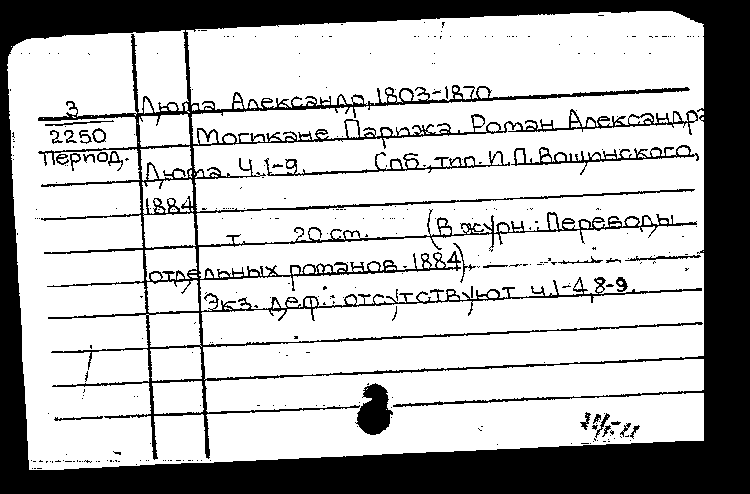 3
2250
Период.
Дюма, Александр, 1803-1870
Могикане Парижа. Роман Александра
Дюма. Ч.1-9. Спб., тип. И.П.Вощинского,
1884.
т. 20 см. (В журн.: Переводы
отдельных романов. 1884).
Экз. деф.: отсутствуют ч.1-4,8-9.